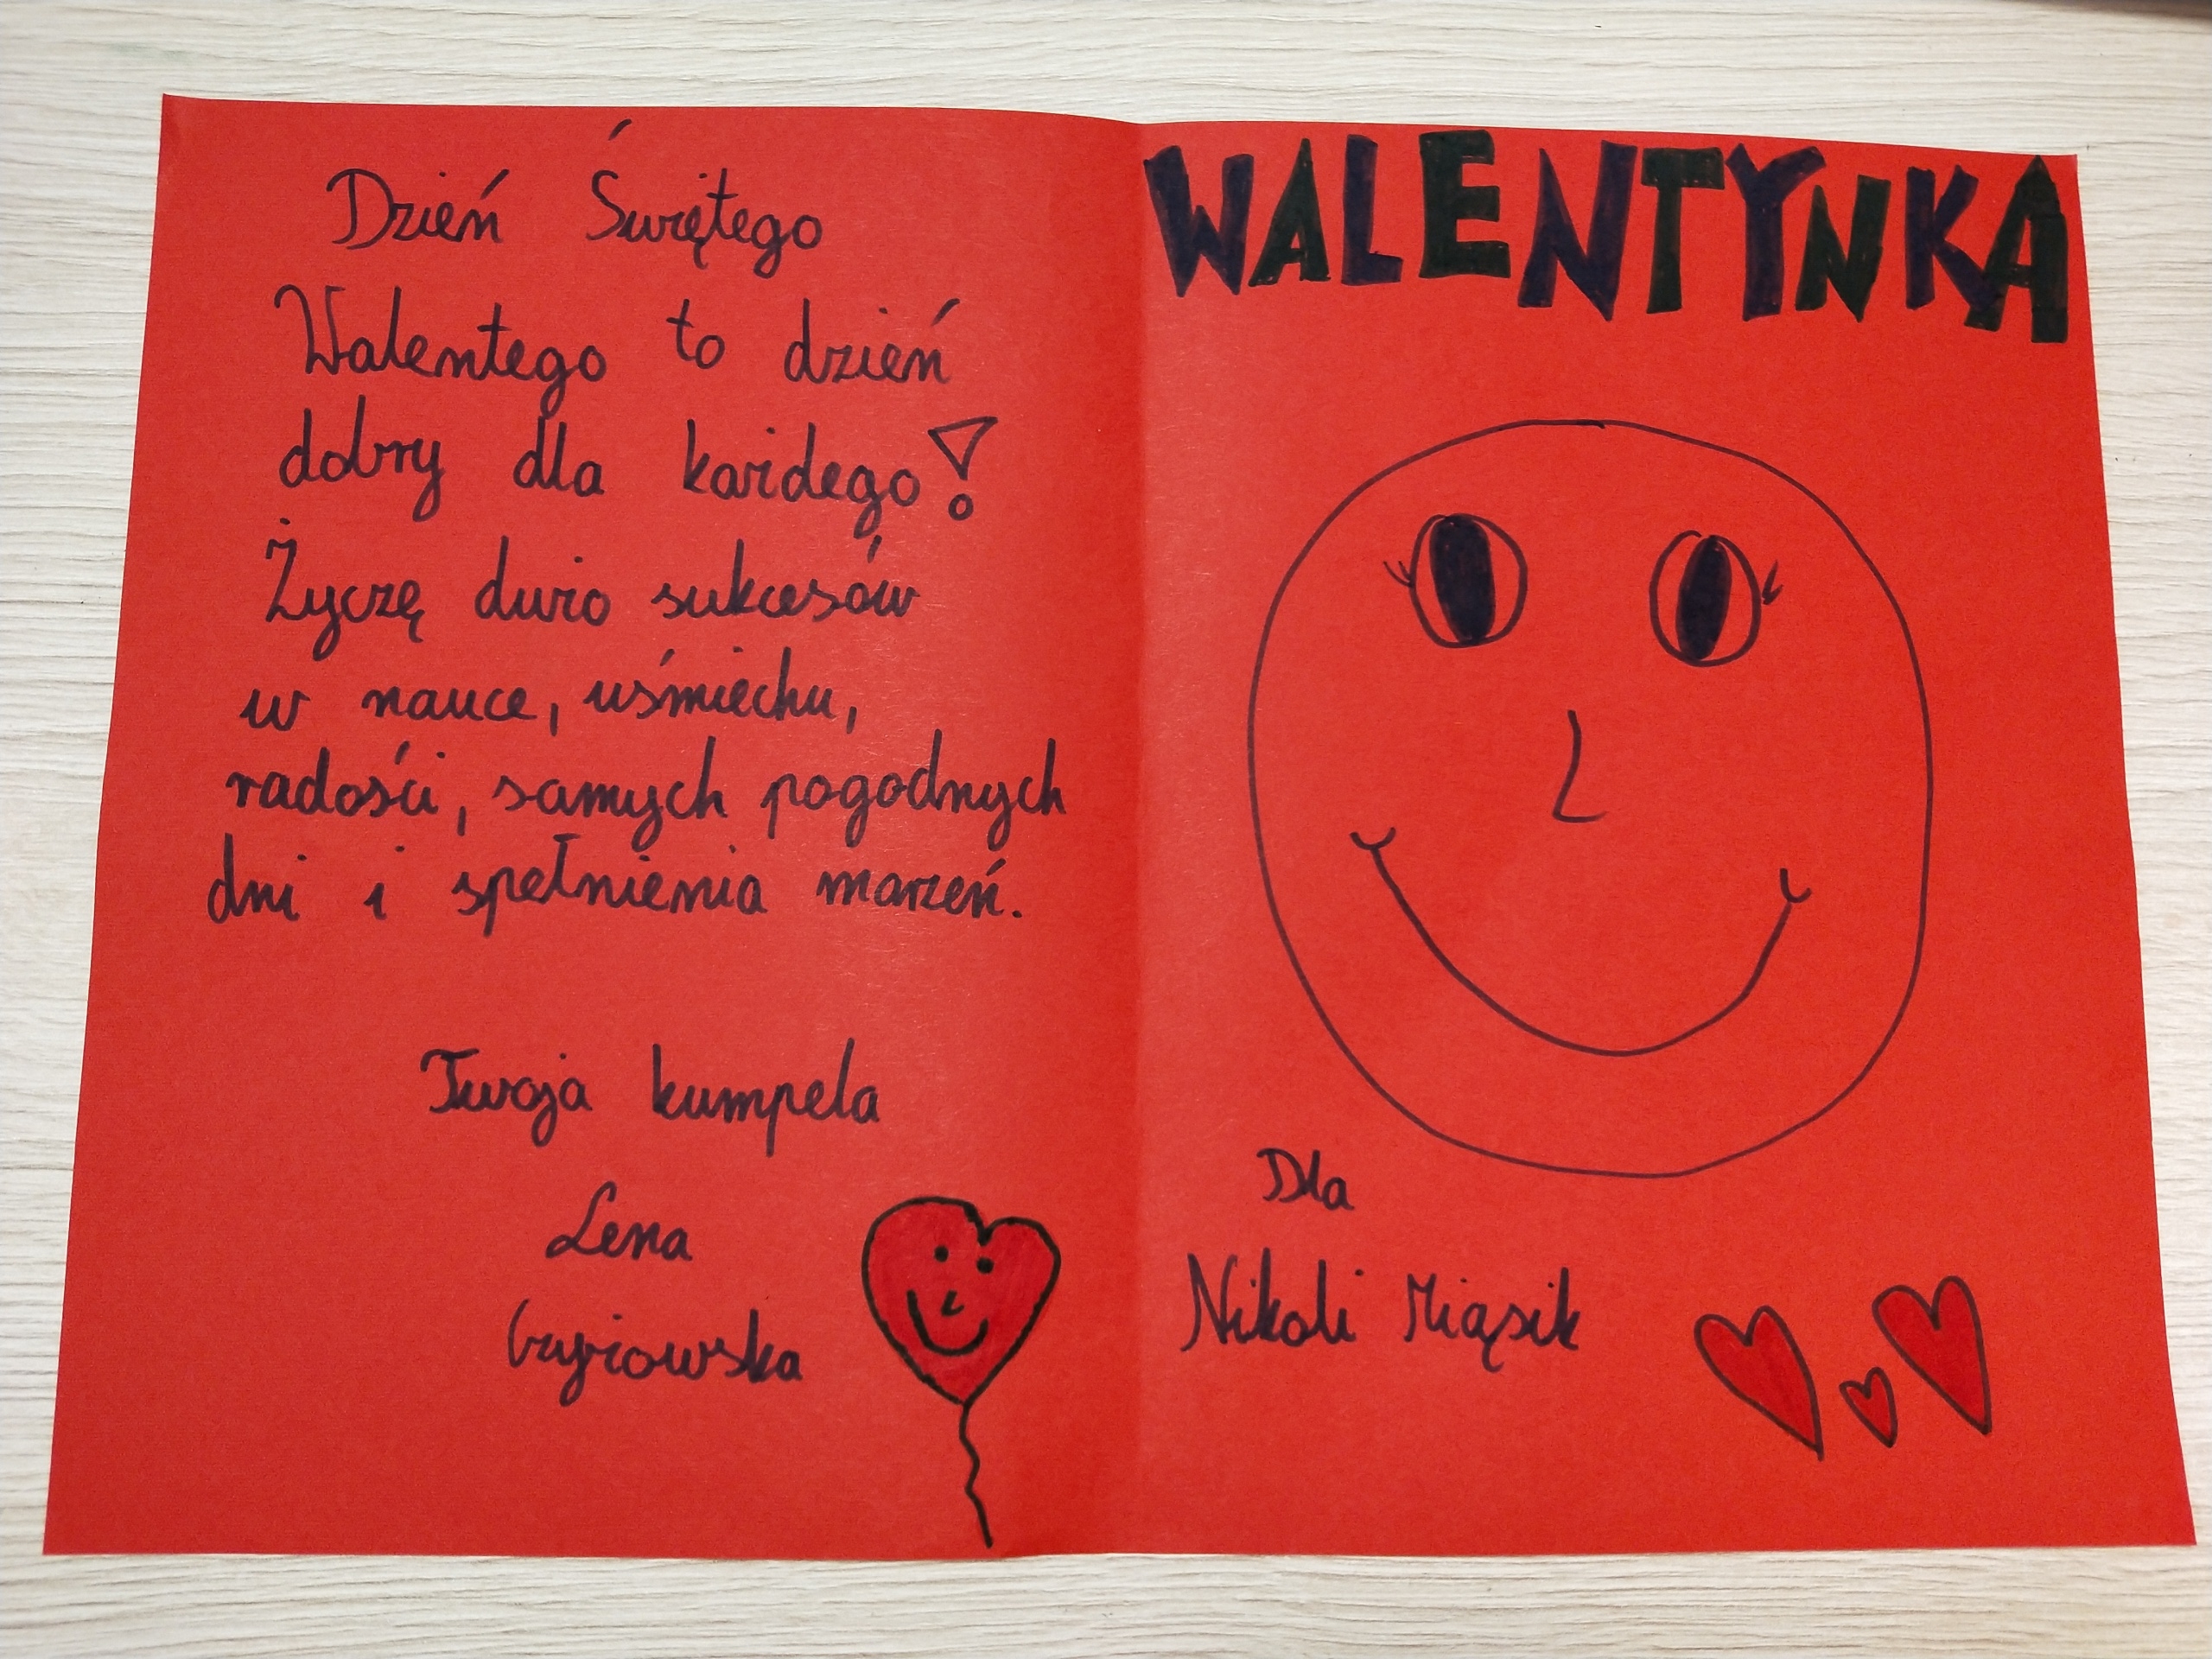 Dzień Świętego
Walentego to dzień
dobry dla każdego!
Życzę dużo sukcesów
w nauce, uśmiechu,
radości, samych pogodnych
dni i spełnienia marzeń.
Twoja kumpela
Lena
WALENTYNKA
Dla
Nikoli Miąsik